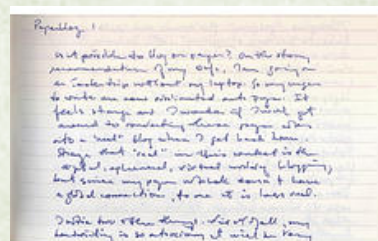 Paperblog 1
is it possible to blog on paper? On the strong
recommendation of my wife, I am going on
an trip without my laptop. So my urges
to write are now onto paper. It
feels strange and I wonder if I will get
around to converting these paper
into a "real" blog when I get back home.
Strange that "real" in this context is the
digital, ephemeral, virtual world of blogging,
but since my paper doesn't have
a global connection, to me it is less real.
I notice two other things. First of all, my
handwriting is so atrocious it will be very